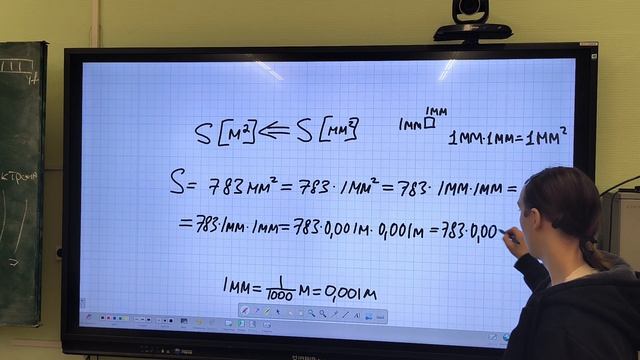 S [м²] ⇐ S [мм²]
1мм
1мм
1мм·1мм=1мм²
S = 783 мм² = 783 · 1мм² = 783 · 1мм·1мм =
= 783·1мм·1мм = 783·0,001м·0,001м = 783·0,00
1мм = 1/1000 м = 0,001м